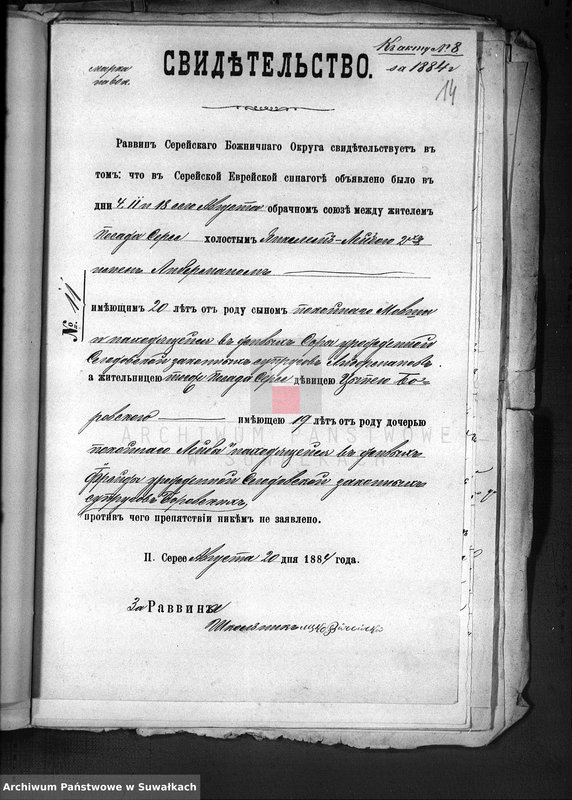 Къ акту № 8
за 1884 г
14
марка
СВИДѢТЕЛЬСТВО.
Раввинъ Серейскаго Божничнаго Округа свидѣтельствуетъ въ
томъ: что въ Серейской Еврейской синагогѣ объявлено было въ
дни 4, 11 и 18 сего Августа обрачномъ союзѣ между жителемъ
посада Серее холостымъ
Либерманомъ
№ 11
имѣющимъ 20 лѣтъ отъ роду сыномъ покойнаго
и находящейся въ живыхъ урожденной
законныхъ супруговъ Либермановъ
а жительницею того посада Серее дѣвицею Бо-
ровскою имѣющею 19 лѣтъ отъ роду дочерью
покойнаго Лейбы и находящейся въ живыхъ
Фрейды урожденной законныхъ
супруговъ Боровскихъ
противъ чего препятствіи никѣмъ не заявлено.
П. Серее Августа 20 дня 1884 года.
За Раввина
ARCHIWUM PAŃSTWOWE
W SUWAŁKACH
Archiwum Państwowe w Suwałkach